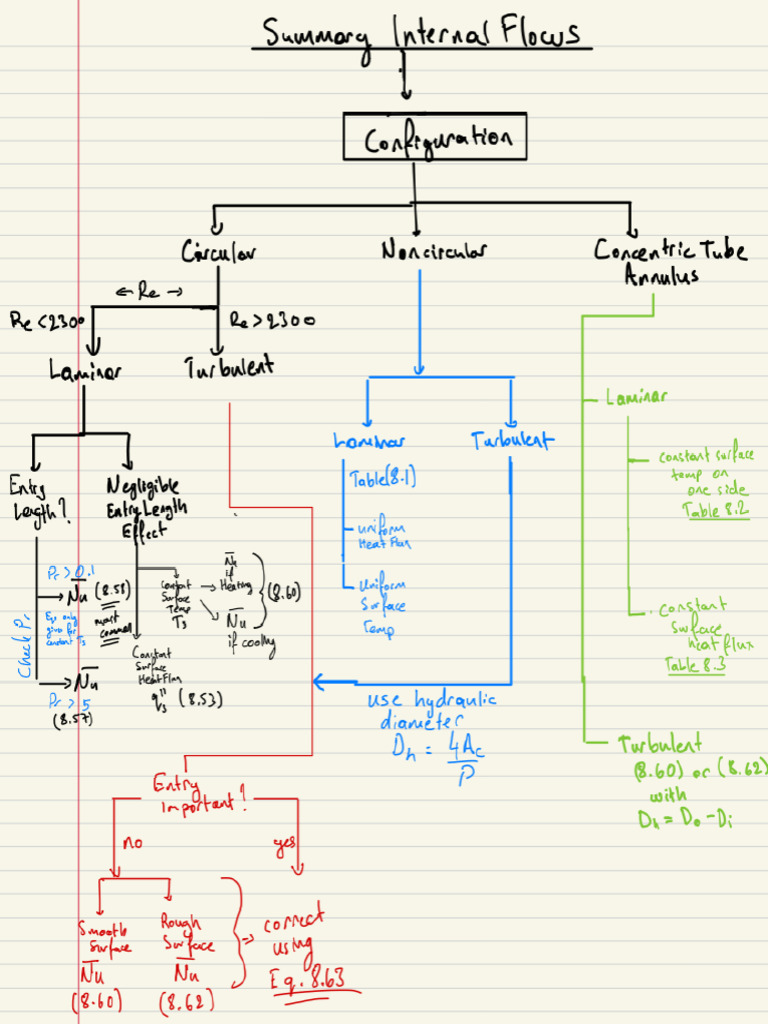 Summary Internal Flows
Configuration
Circular
Noncircular
Concentric Tube
Annulus
← Re →
Re < 2300
Re > 2300
Laminar
Turbulent
Entry
Length?
Negligible
Entry Length
Effect
Check Pr
Pr > 0.1
N̅u̅ (8.58)
most
common
Eqs only
given for
constant Ts
N̅u̅
Pr > 5
(8.57)
Constant
Surface
Temp
Ts
N̅u̅
if
Heating
N̅u̅
if cooling
(8.60)
Constant
Surface
Heat Flux
qs" (8.53)
Laminar
Turbulent
Table (8.1)
uniform
Heat Flux
Uniform
Surface
Temp
use hydraulic
diameter
Dh = 4Ac
P
Laminar
constant surface
temp on
one side
Table 8.2
constant
surface
heat flux
Table 8.3
Turbulent
(8.60) or (8.62)
with
Dh = Do - Di
Entry
important?
no
yes
Smooth
Surface
N̅u̅
(8.60)
Rough
Surface
N̅u̅
(8.62)
⇒ correct
using
Eq. 8.63